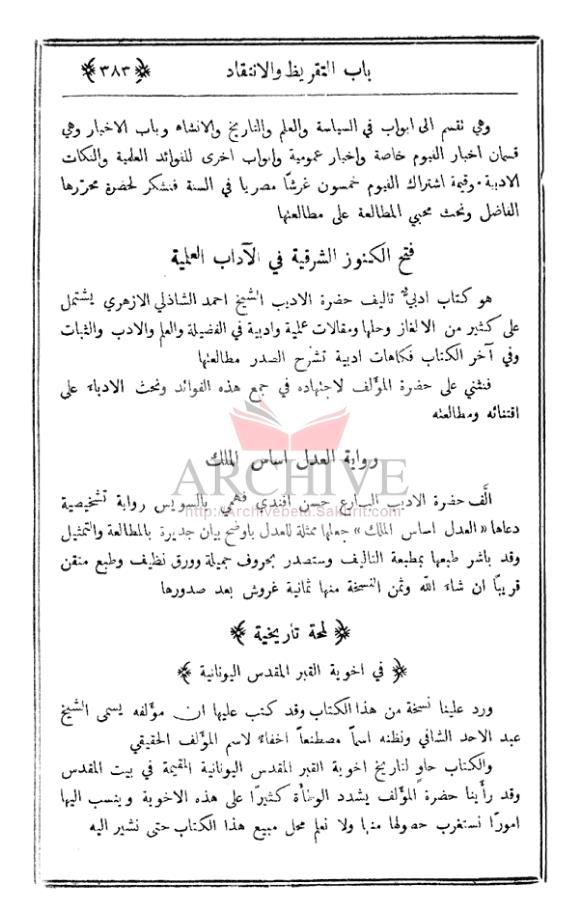 باب التقريظ والانتقاد
﴿٣٨٣﴾
وهي تقسم الى ابواب في السياسة والعلم والتاريخ والانشاء وباب الاخبار وهي
قسمان اخبار الفيوم خاصة واخبار عمومية وابواب اخرى للفوائد العلمية والنكات
الادبية. وقيمة اشتراك الفيوم خمسون غرشًا مصريا في السنة فنشكر لحضرة محررها
الفاضل ونحث محبي المطالعة على مطالعتها
فتح الكنوز الشرقية في الآداب العلمية
هو كتاب ادبيٌّ تاليف حضرة الاديب الشيخ احمد الشاذلي الازهري يشتمل
على كثير من الالغاز وحلها ومقالات علمية وادبية في الفضيلة والعلم والادب والثبات
وفي آخر الكتاب فكاهات ادبية تشرح الصدر مطالعتها
فنثني على حضرة المؤلف لاجتهاده في جمع هذه الفوائد ونحث الادباء على
اقتنائه ومطالعته
رواية العدل اساس الملك
ARCHIVE
http://Archivebeta.Sakhrit.com
الَّف حضرة الاديب البارع حسن افندي فهمي بالسويس رواية تشخيصية
دعاها «العدل اساس الملك» جعلها ممثلة للعدل باوضح بيان جديرة بالمطالعة والتمثيل
وقد باشر طبعها بمطبعة التاليف وستصدر بحروف جميلة وورق نظيف وطبع متقن
قريبًا ان شاء الله وثمن النسخة منها ثمانية غروش بعد صدورها
﴿ لمحة تاريخية ﴾
﴿ في اخوية القبر المقدس اليونانية ﴾
ورد علينا نسخة من هذا الكتاب وقد كتب عليها ان مؤلفه يسمى الشيخ
عبد الاحد الشافي ونظنه اسماً مصطنعاً اخفاءً لاسم المؤلف الحقيقي
والكتاب حاوٍ لتاريخ اخوية القبر المقدس اليونانية المقيمة في بيت المقدس
وقد رأينا حضرة المؤلف يشدد الوطأة كثيرًا على هذه الاخوية وينسب اليها
امورًا نستغرب حصولها منها ولا نعلم محل مبيع هذا الكتاب حتى نشير اليه